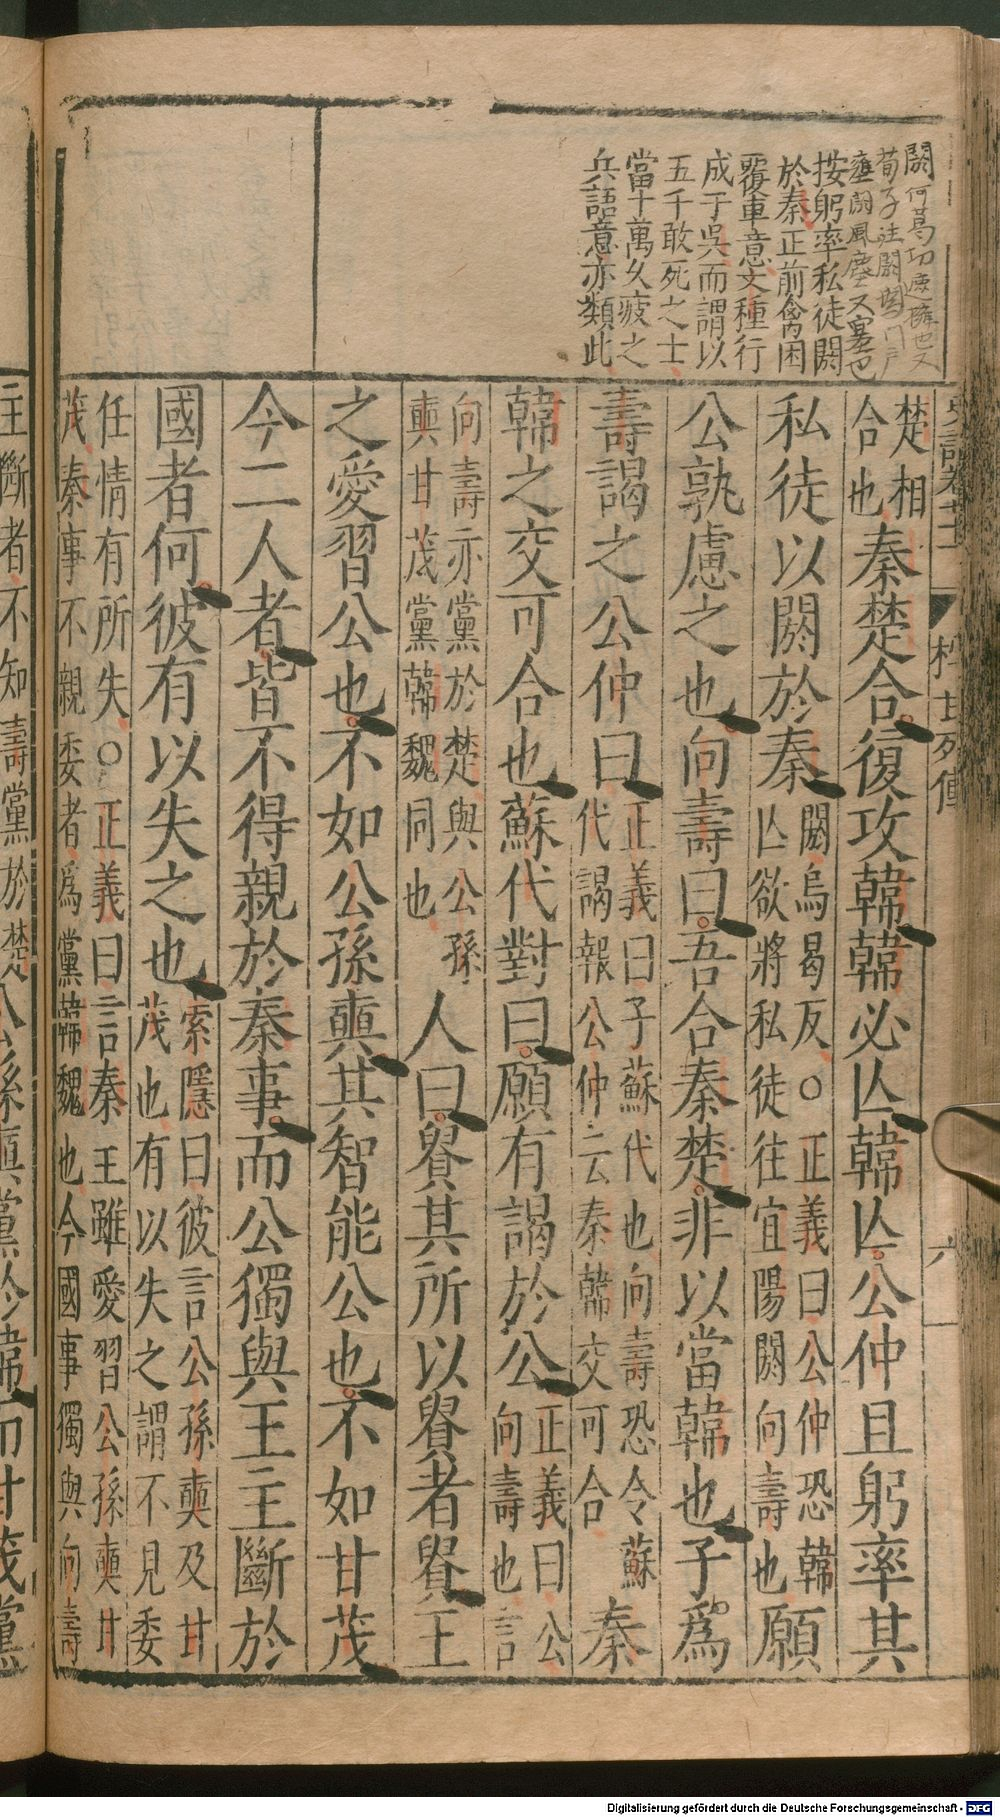 闕何葛切康擁也又
荀子注闕閼門戶
壅閼風塵又塞也
按躬率私徒閼
於秦正前禽困
覆車意文種行
成于吳而謂以
五千敢死之士
當十萬久疲之
兵語意亦類此
楚相
合也
秦楚合復攻韓韓必亾韓亾公仲且躬率其
私徒以閼於秦
閼烏曷反○正義曰公仲恐韓
亾欲將私徒往宜陽閼向壽也
願
公孰慮之也向壽曰吾合秦楚非以當韓也子爲
壽謁之公仲曰
正義曰子蘇代也向壽恐令蘇
代謁報公仲云秦韓交可合
秦
韓之交可合也蘇代對曰願有謁於公
正義曰公
向壽也言
向壽亦黨於楚與公孫
奭甘茂黨韓魏同也
人曰貴其所以貴者貴王
之愛習公也不如公孫奭其智能公也不如甘茂
今二人者皆不得親於秦事而公獨與王主斷於
國者何彼有以失之也
索隱曰彼言公孫奭及甘
茂也有以失之謂不見委
任情有所失○正義曰言秦王雖愛習公孫奭甘
茂秦事不親委者爲黨韓魏也今國事獨與向壽
主斷者不知壽黨於楚公孫奭黨於韓而甘茂黨
史記卷七十一
樗甘列傳
六
Digitalisierung gefördert durch die Deutsche Forschungsgemeinschaft - DFG